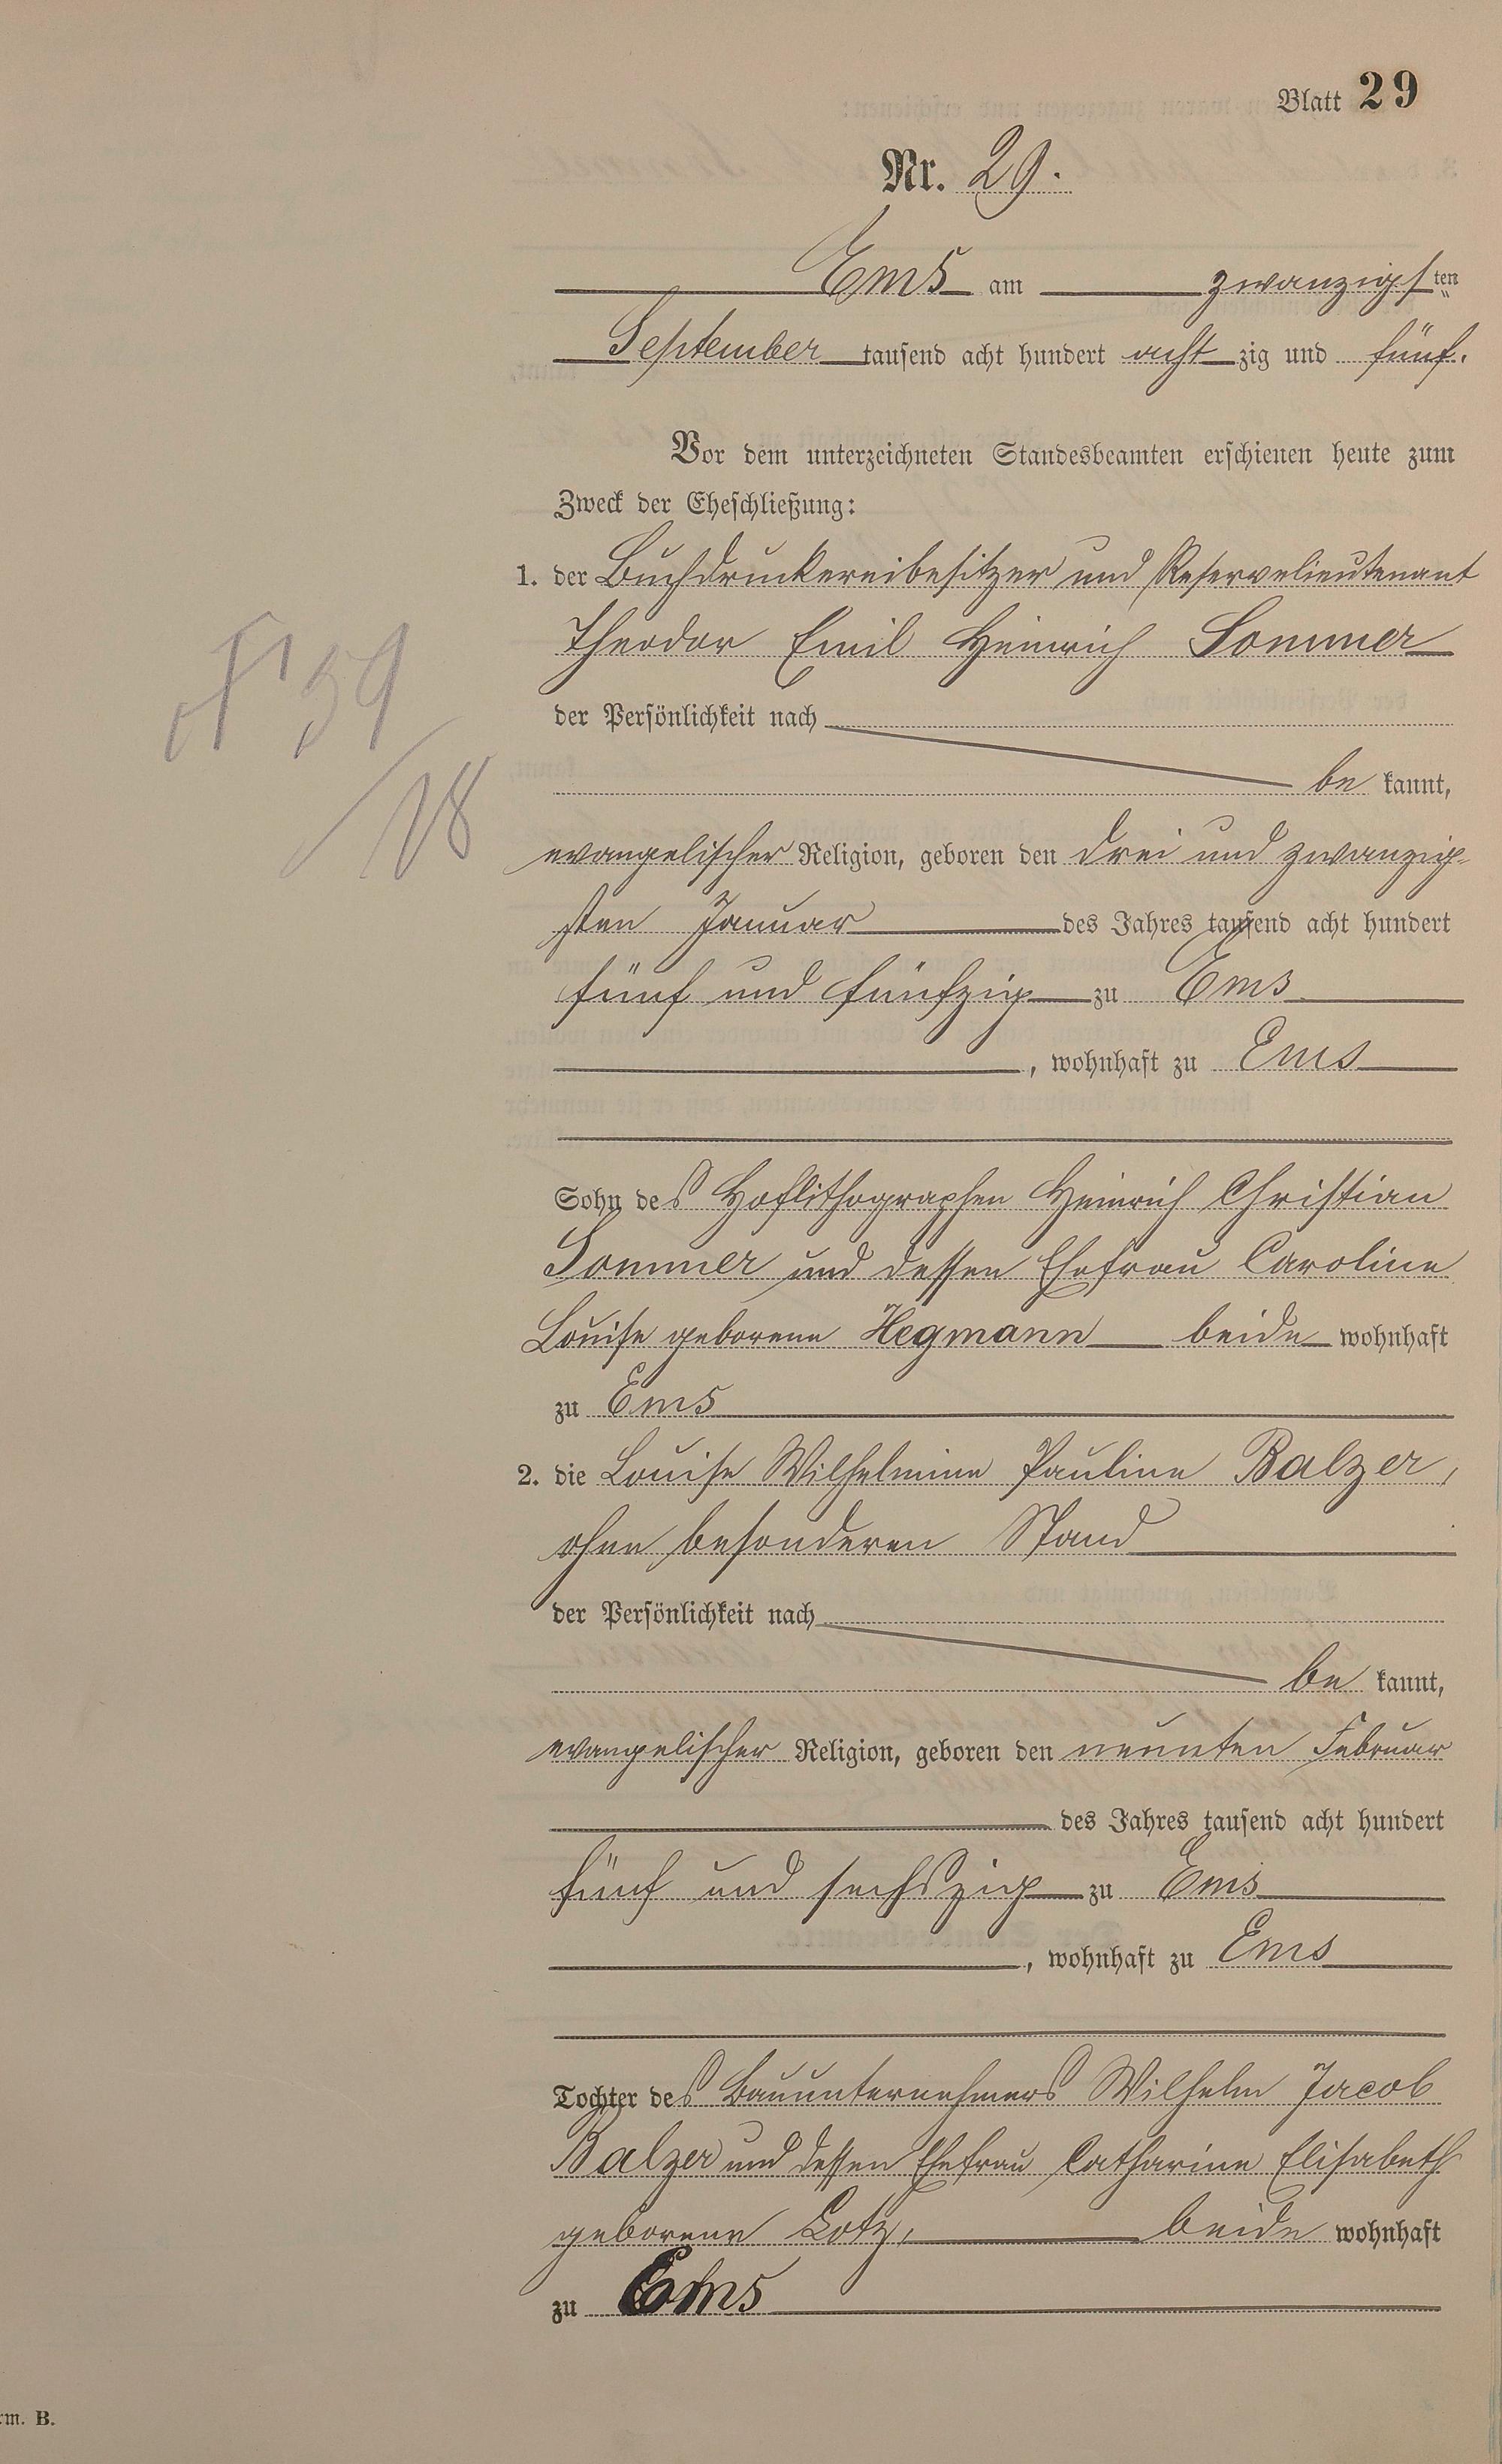 Blatt 29
Nr. 29.
Ems am zwanzigsten
September tausend acht hundert acht zig und fünf.
Vor dem unterzeichneten Standesbeamten erschienen heute zum
Zweck der Eheschließung:
1. der Buchdruckereibesitzer und Reservelieutenant
Theodor Emil Heinrich Sommer
der Persönlichkeit nach
be kannt,
evangelischer Religion, geboren den drei und zwanzig-
sten Januar des Jahres tausend acht hundert
fünf und fünfzig zu Ems
, wohnhaft zu Ems
Sohn des Hoflithographen Heinrich Christian
Sommer und dessen Ehefrau Caroline
Louise geborene Hegmann beide wohnhaft
zu Ems
2. die Louise Wilhelmine Pauline Balzer,
ohne besonderen Stand
der Persönlichkeit nach
be kannt,
evangelischer Religion, geboren den neunten Februar
des Jahres tausend acht hundert
fünf und sechszig zu Ems
, wohnhaft zu Ems
Tochter des Bauunternehmers Wilhelm Jacob
Balzer und dessen Ehefrau Catharine Elisabeth
geborene Lotz, beide wohnhaft
zu Ems
rm. B.
59
/18